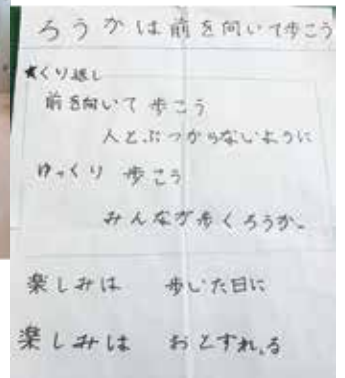 ろうかは前を向いて歩こう
★くり返し
前を向いて 歩こう
人とぶつからないように
ゆっくり 歩こう
みんなが歩くろうか。
楽しみは 歩いた日に
楽しみは おとずれる